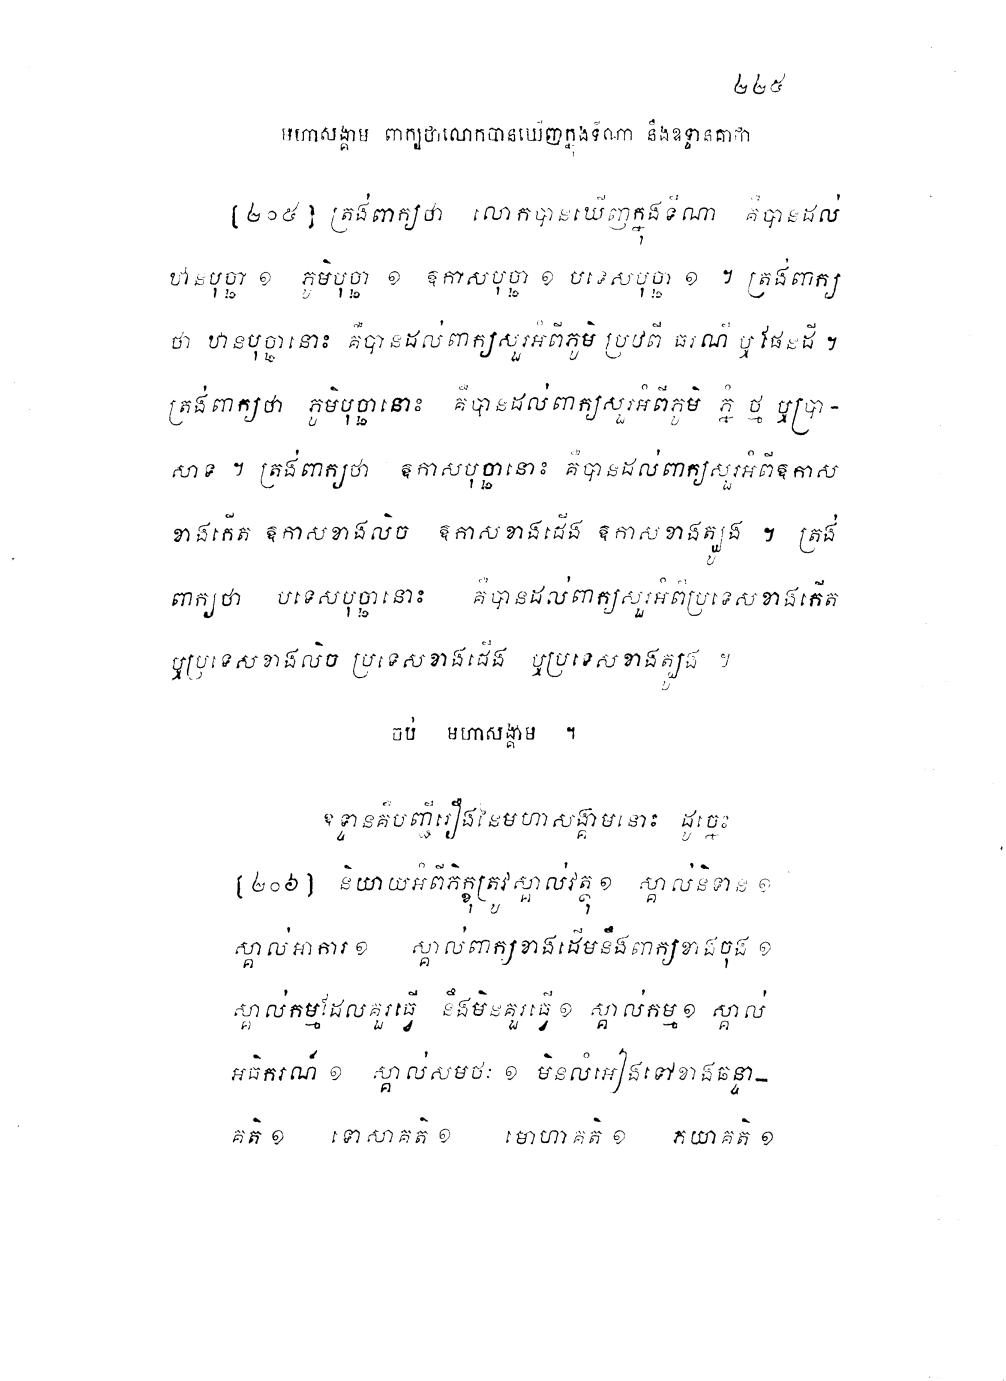 ២២៥
មហាសង្គាម ពាក្យថាលោកបានឃើញក្នុងទីណា នឹងឧទ្ទានគាថា
[២០៥] ត្រង់ពាក្យថា លោកបានឃើញក្នុងទីណា គឺបានដល់
ឋានបុច្ឆា ១ ភូមិបុច្ឆា ១ ឱកាសបុច្ឆា ១ បទេសបុច្ឆា ១ ។ ត្រង់ពាក្យ
ថា ឋានបុច្ឆានោះ គឺបានដល់ពាក្យសួរអំពីភូមិ ប្រឋពី ធរណី ឬផែនដី ។
ត្រង់ពាក្យថា ភូមិបុច្ឆានោះ គឺបានដល់ពាក្យសួរអំពីភូមិ ភ្នំ ថ្ម ឬប្រា-
សាទ ។ ត្រង់ពាក្យថា ឱកាសបុច្ឆានោះ គឺបានដល់ពាក្យសួរអំពីឱកាស
ខាងកើត ឱកាសខាងលិច ឱកាសខាងជើង ឱកាសខាងត្បូង ។ ត្រង់
ពាក្យថា បទេសបុច្ឆានោះ គឺបានដល់ពាក្យសួរអំពីប្រទេសខាងកើត
ឬប្រទេសខាងលិច ប្រទេសខាងជើង ឬប្រទេសខាងត្បូង ។
ចប់ មហាសង្គាម ។
ឧទ្ទានគឺបញ្ជីរឿងនៃមហាសង្គាមនោះ ដូច្នេះ
[២០៦] និយាយអំពីភិក្ខុត្រូវស្គាល់វត្ថុ ១ ស្គាល់និទាន ១
ស្គាល់អាការ ១ ស្គាល់ពាក្យខាងដើមនឹងពាក្យខាងចុង ១
ស្គាល់កម្មដែលគួរធ្វើ នឹងមិនគួរធ្វើ ១ ស្គាល់កម្ម ១ ស្គាល់
អធិករណ៍ ១ ស្គាល់សមថៈ ១ មិនលំអៀងទៅខាងឆន្ទា-
គតិ ១ ទោសាគតិ ១ មោហាគតិ ១ ភយាគតិ ១